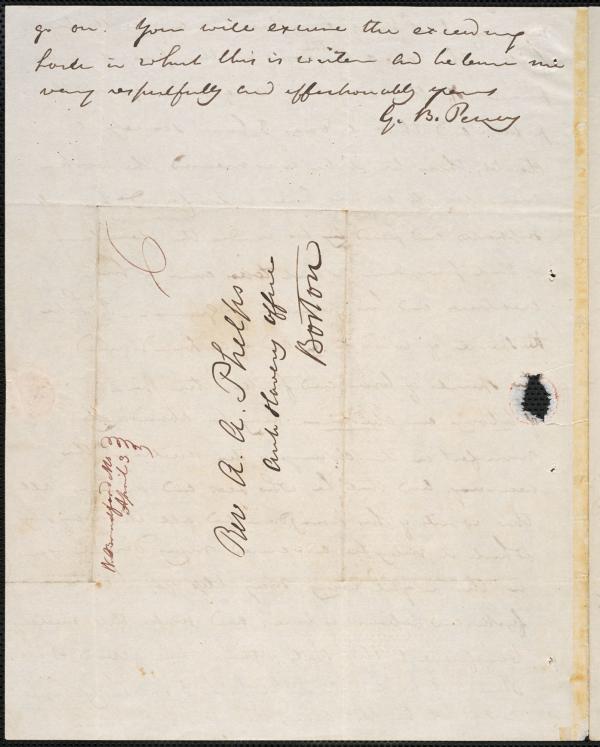 go on. You will excuse the exceeding
haste in which this is written and believe me
very respectfully and affectionately yours
G. B. Perry
6
Rev A. A. Phelps
Anti Slavery Office
Boston
W. Bradford Ms
April 3